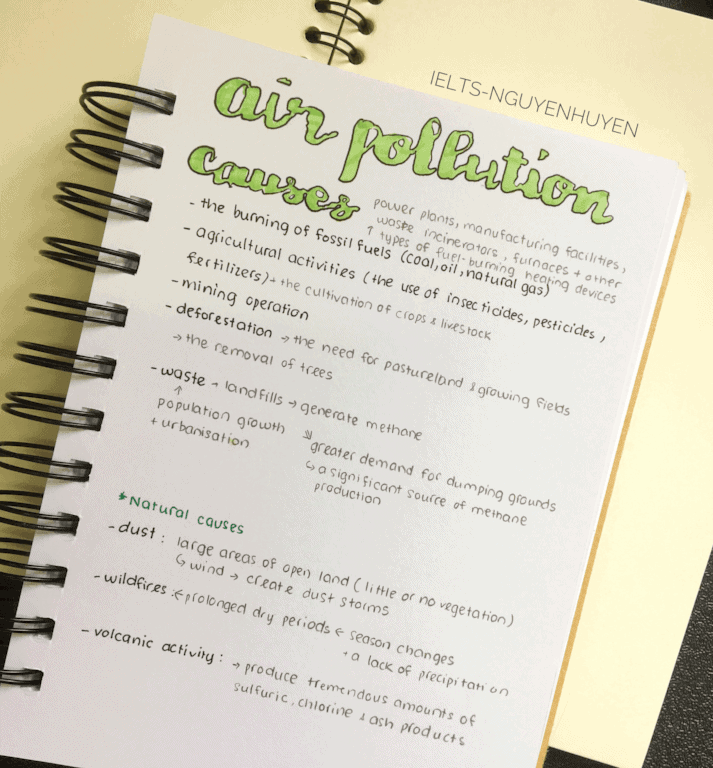 IELTS-NGUYENHUYEN
air pollution
causes
power plants, manufacturing facilities,
waste incinerators, furnaces + other
↑ types of fuel-burning heating devices
- the burning of fossil fuels (coal, oil, natural gas)
- agricultural activities (the use of insecticides, pesticides,
fertilizers) + the cultivation of crops & livestock
- mining operation
- deforestation → the need for pastureland & growing fields
→ the removal of trees
- waste → landfills → generate methane
↑
population growth
+ urbanisation
↘
greater demand for dumping grounds
↳ a significant source of methane
production
*Natural causes
- dust: large areas of open land (little or no vegetation)
↳ wind → create dust storms
- wildfires: ← prolonged dry periods ← season changes
+ a lack of precipitation
- volcanic activity: → produce tremendous amounts of
sulfuric, chlorine & ash products